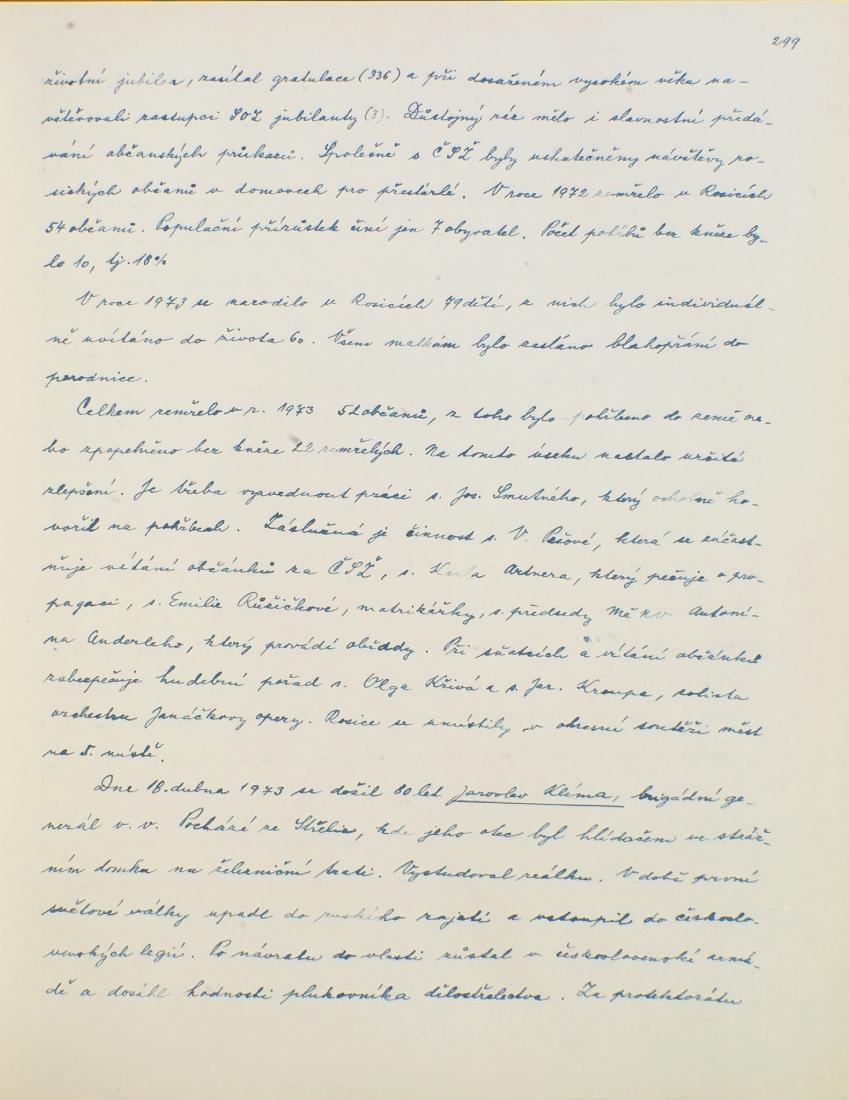 299
životní jubilea, zasílal gratulace (336) a při dosaženém vysokém věku na-
vštěvovali zastupci SOZ jubilanty (3). Důstojný ráz mělo i slavnostní předá-
vání občanských průkazů. Společně s ČSŽ byly uskutečněny návštěvy ro-
sických občanů v domovech pro přestárlé. V roce 1972 zemřelo v Rosicích
54 občanů. Populační přírůstek činí jen 7 obyvatel. Počet pohřbů bez kněze by-
lo 10, tj. 18%
V roce 1973 se narodilo v Rosicích 79 dětí, z nich bylo individuál-
ně uvítáno do života 60. Všem matkám bylo zasláno blahopřání do
porodnice.
Celkem zemřelo v r. 1973 52 občanů, z toho bylo pohřbeno do země ne-
bo zpopelněno bez kněze 22 zemřelých. Na tomto úseku nastalo určité
zlepšení. Je třeba vyzvednout práci s. Jos. Smutného, který ochotně ho-
vořil na pohřbech. Záslužná je činnost s. V. Pešové, která se zúčast-
ňuje vítání občánků za ČSŽ, s. Karla Artnera, který pečuje o pro-
pagaci, s. Emilie Růžičkové, matrikářky, s. předsedy MěNV Antoní-
na Anderleho, který provádí obřady. Při sňatcích a vítání občánků
zabezpečuje hudební pořad s. Olga Křivá a s. Jar. Kroupa, solista
orchestru Janáčkovy opery. Rosice se umístily v okresní soutěži měst
na 5. místě.
Dne 18. dubna 1973 se dožil 80 let Jaroslav Klíma, brigádní ge-
nerál v. v. Pochází ze Střelic, kde jeho otec byl hlídačem ve stráž-
ním domku na železniční trati. Vystudoval reálku. V době první
světové války upadl do ruského zajetí a vstoupil do českoslo-
venských legií. Po návratu do vlasti zůstal v československé armá-
dě a dosáhl hodnosti plukovníka dělostřelectva. Za protektorátu